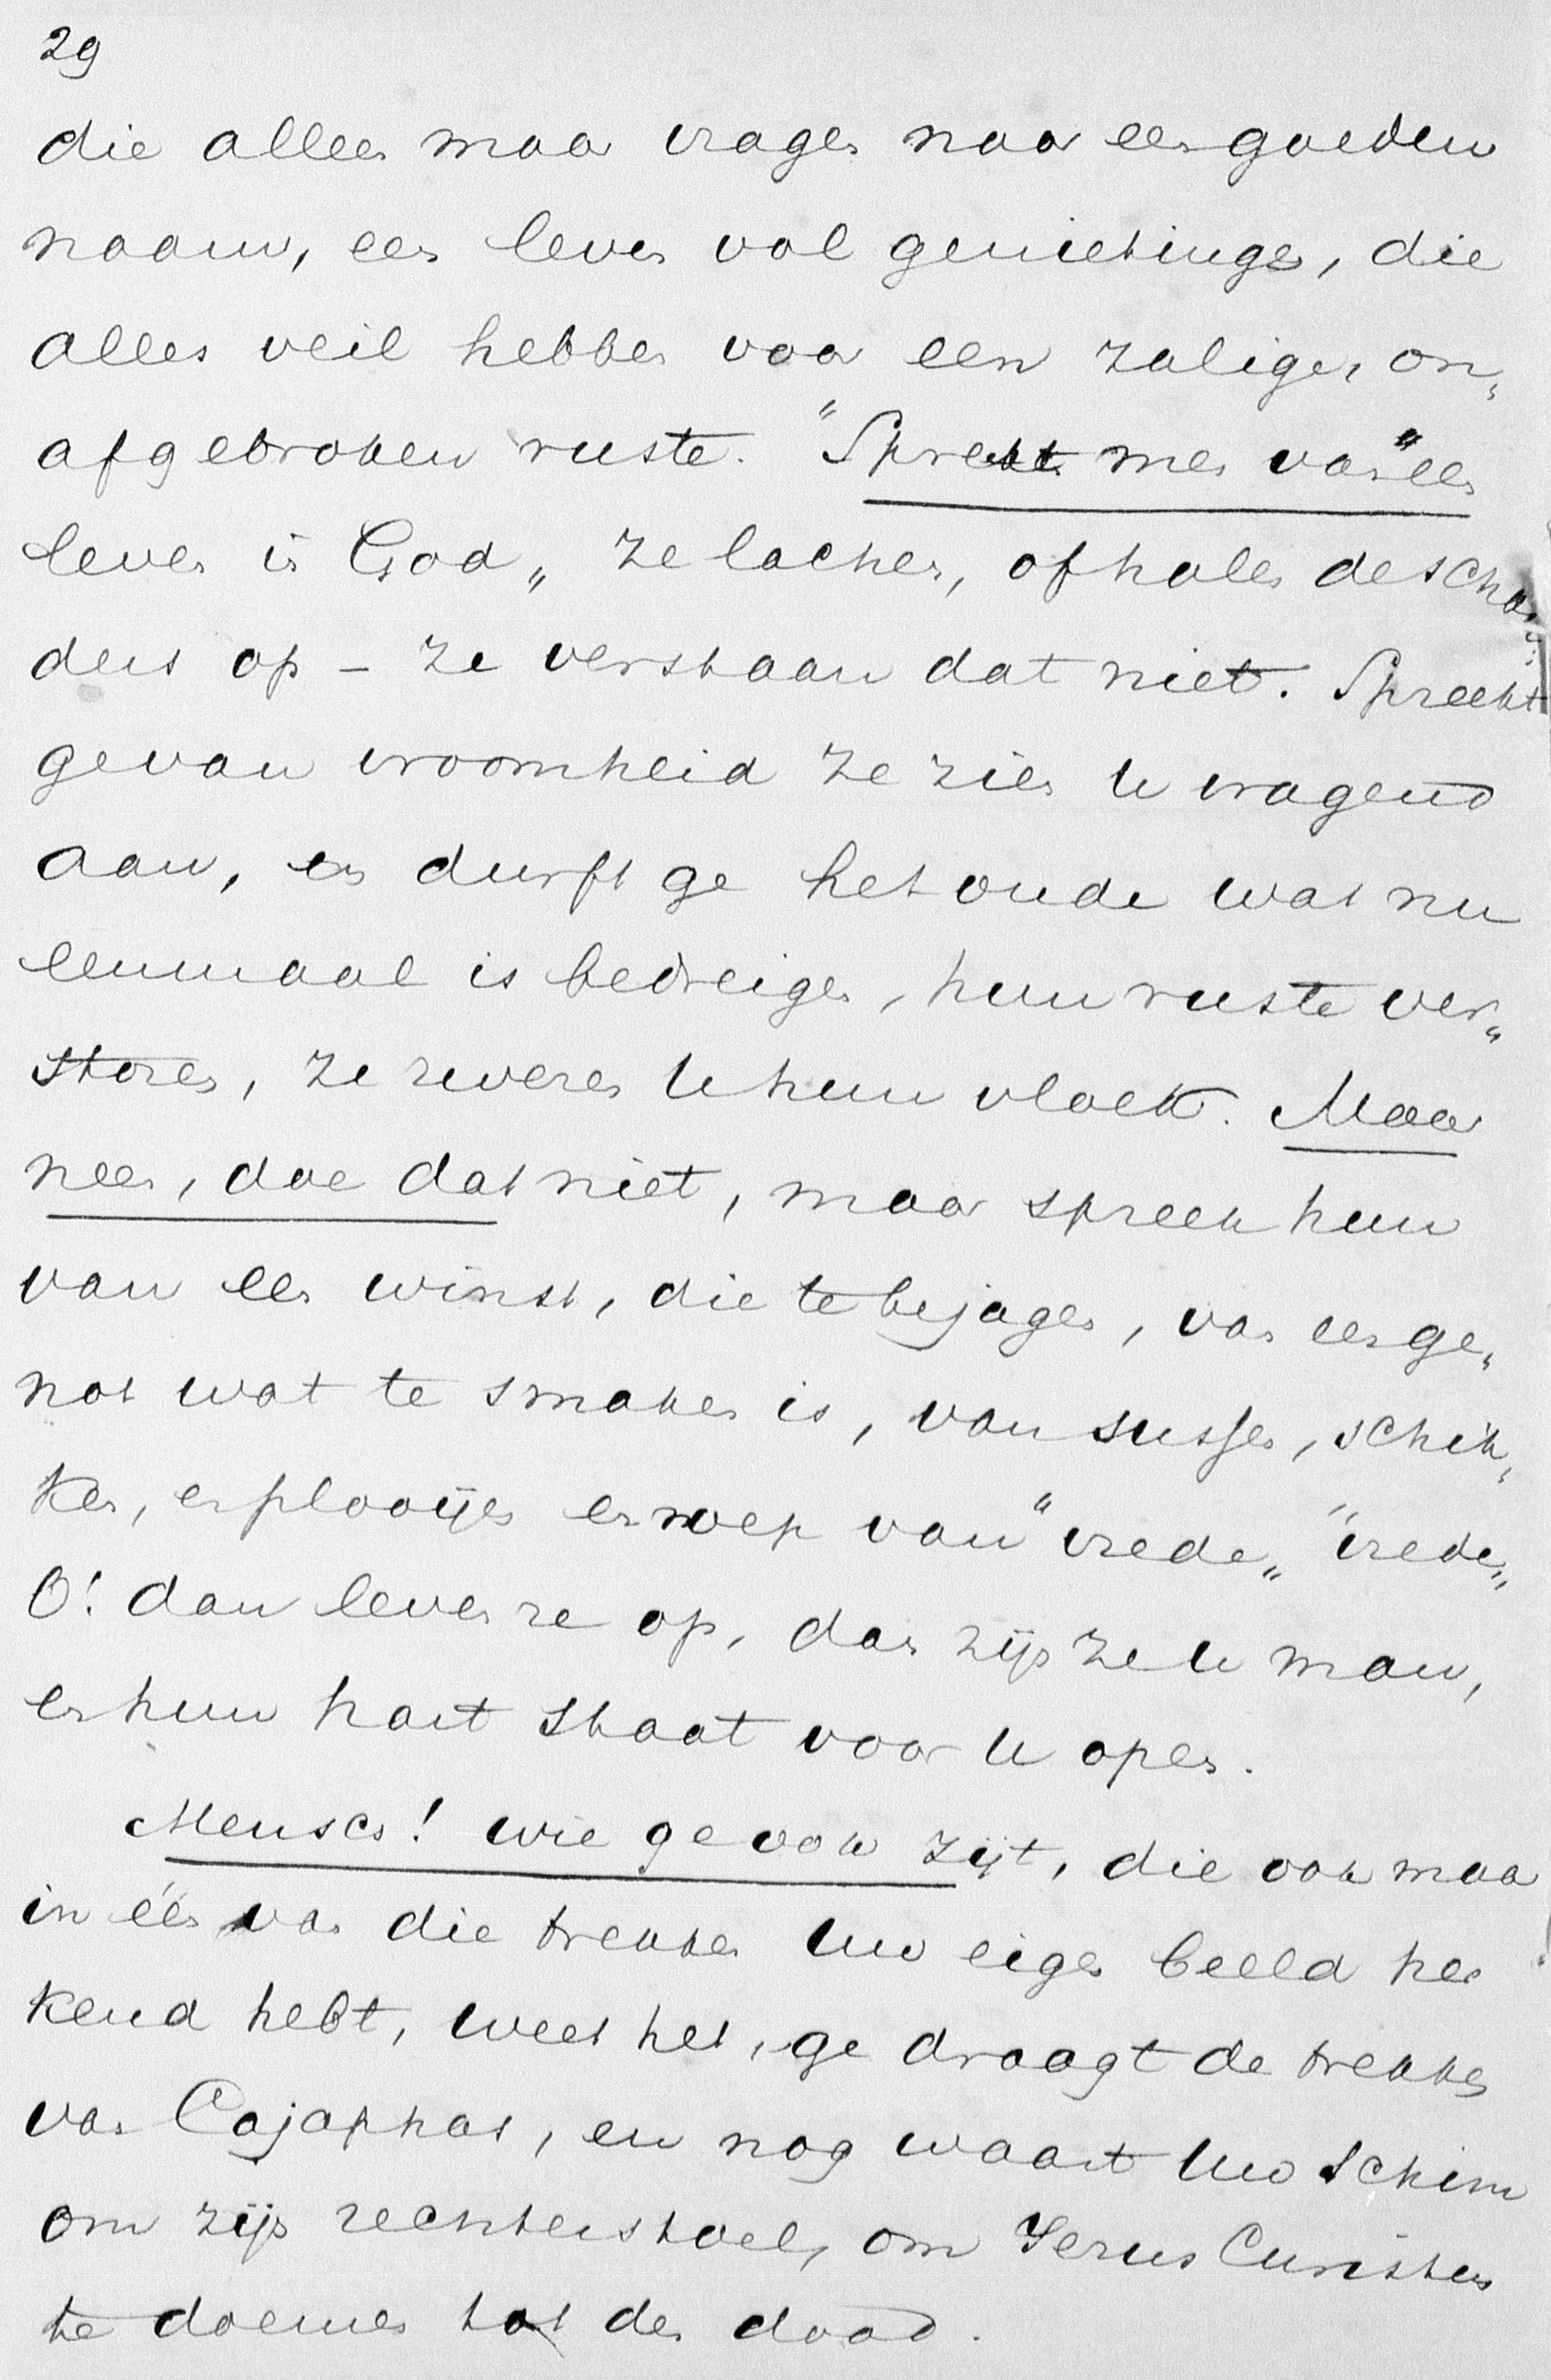 29
die alleen maar vragen naar een goeden
naam, een leven vol genietingen, die
alles veil hebben voor een zaligen, on„
afgebroken ruste. "Spreekt men van "een
leven in God„ ze lachen, of halen de schou„
ders op - ze verstaan dat niet. Spreekt
ge van vroomheid ze zien U vragend
aan, en durft ge het oude wat nu
eenmaal is bedreigen, hun ruste ver„
storen, ze zweren U hun vloek. Maar
neen, doe dat niet, maar spreek hun
van een winst, die te bejagen, van een ge„
not wat te smaken is, van sussen, schik„
ken, en plooijen en roep van "vrede„ "vrede„
O! dan leven ze op, dan zijn ze U man,
en hun hart staat voor U open.
Menschen! wie ge ook zijt, die ook maar
in één van die trekken Uw eigen beeld her
kend hebt, weet het, ge draagt de trekken
van Cajaphas, en nog waart Uw schim
om zijn rechterstoel, om Jezus Christus
te doemen tot den dood.